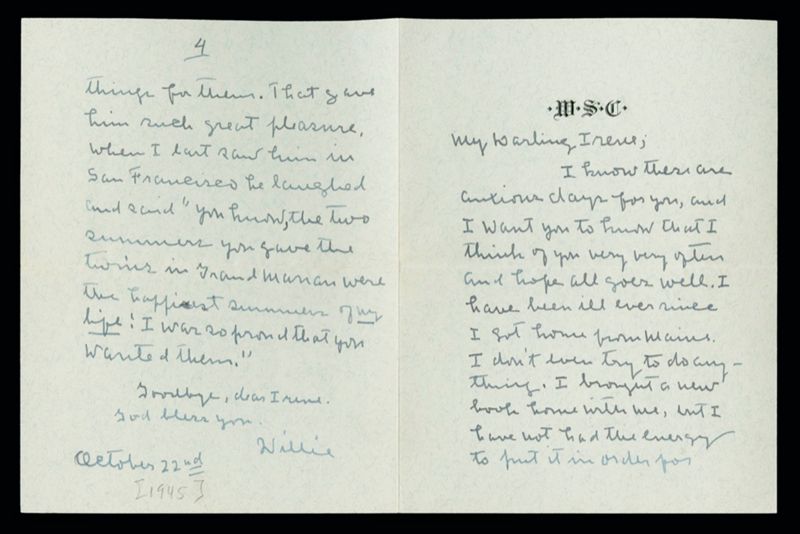 4
things for them. That gave
him such great pleasure,
When I last saw him in
San Francisco he laughed
and said "you know, the two
summers you gave the
twins in Grand Manan were
the happiest summers of my
life! I was so proud that you
wanted them."
Goodbye, dear Irene.
God bless you.
Willie
October 22nd
[1945]
·W·S·C·
My Darling Irene;
I know these are
anxious days for you, and
I want you to know that I
think of you very very often
and hope all goes well. I
have been ill ever since
I got home from Maine.
I don't even try to do any-
thing. I brought a new
book home with me, but I
have not had the energy
to put it in order for